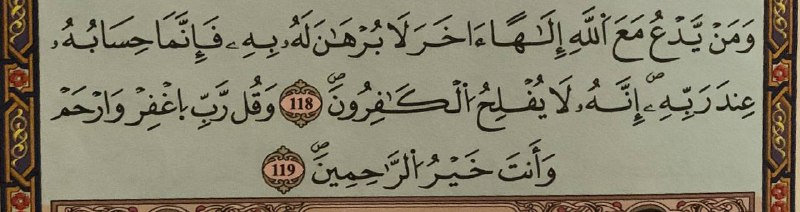 وَمَنْ يَّدْعُ مَعَ اَللَّهِ إِلَٰهًا ءَاخَرَ لَا بُرْهَٰنَ لَهُۥ بِهِۦ فَإِنَّمَا حِسَابُهُۥ
عِندَ رَبِّهِۦٓ إِنَّهُۥ لَا يُفْلِحُ اُلْكَٰفِرُونَۖ 118 وَقُل رَّبِّ اِغْفِرْ وَارْحَمْ
وَأَنتَ خَيْرُ اُلرَّٰحِمِينَۖ 119